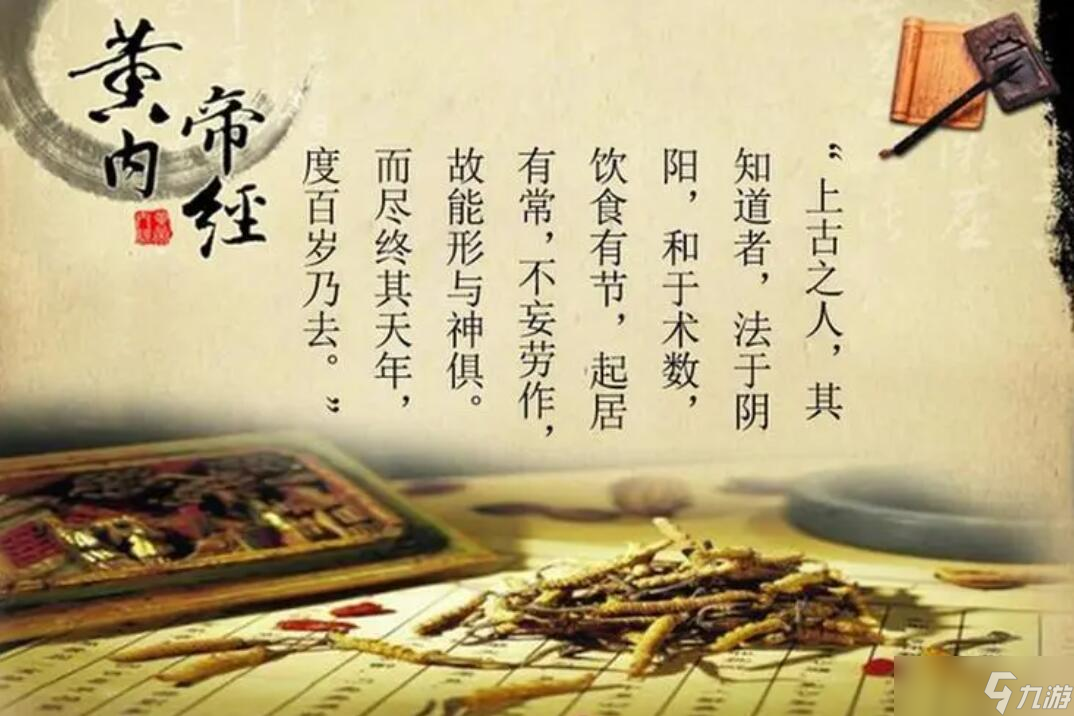 黄帝内經
“上古之人，其
知道者，法于阴
阳，和于术数，
饮食有节，起居
有常，不妄劳作，
故能形与神俱。
而尽终其天年，
度百岁乃去。”
九游